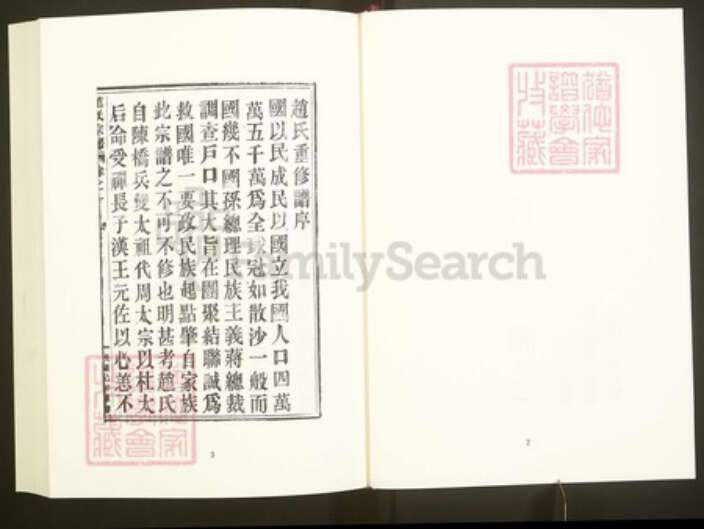 趙氏重修譜序
國以民成民以國立我國人口四萬
萬五千萬爲全球冠如散沙一般而
國幾不國孫總理民族主義蔣總裁
調查戶口其大旨在團聚結聯誠爲
救國唯一要政民族起點肇自家族
此宗譜之不可不修也明甚考趙氏
自陳橋兵變太祖代周太宗以杜太
后命受禪長子漢王元佐以心恙不
3
2
FamilySearch